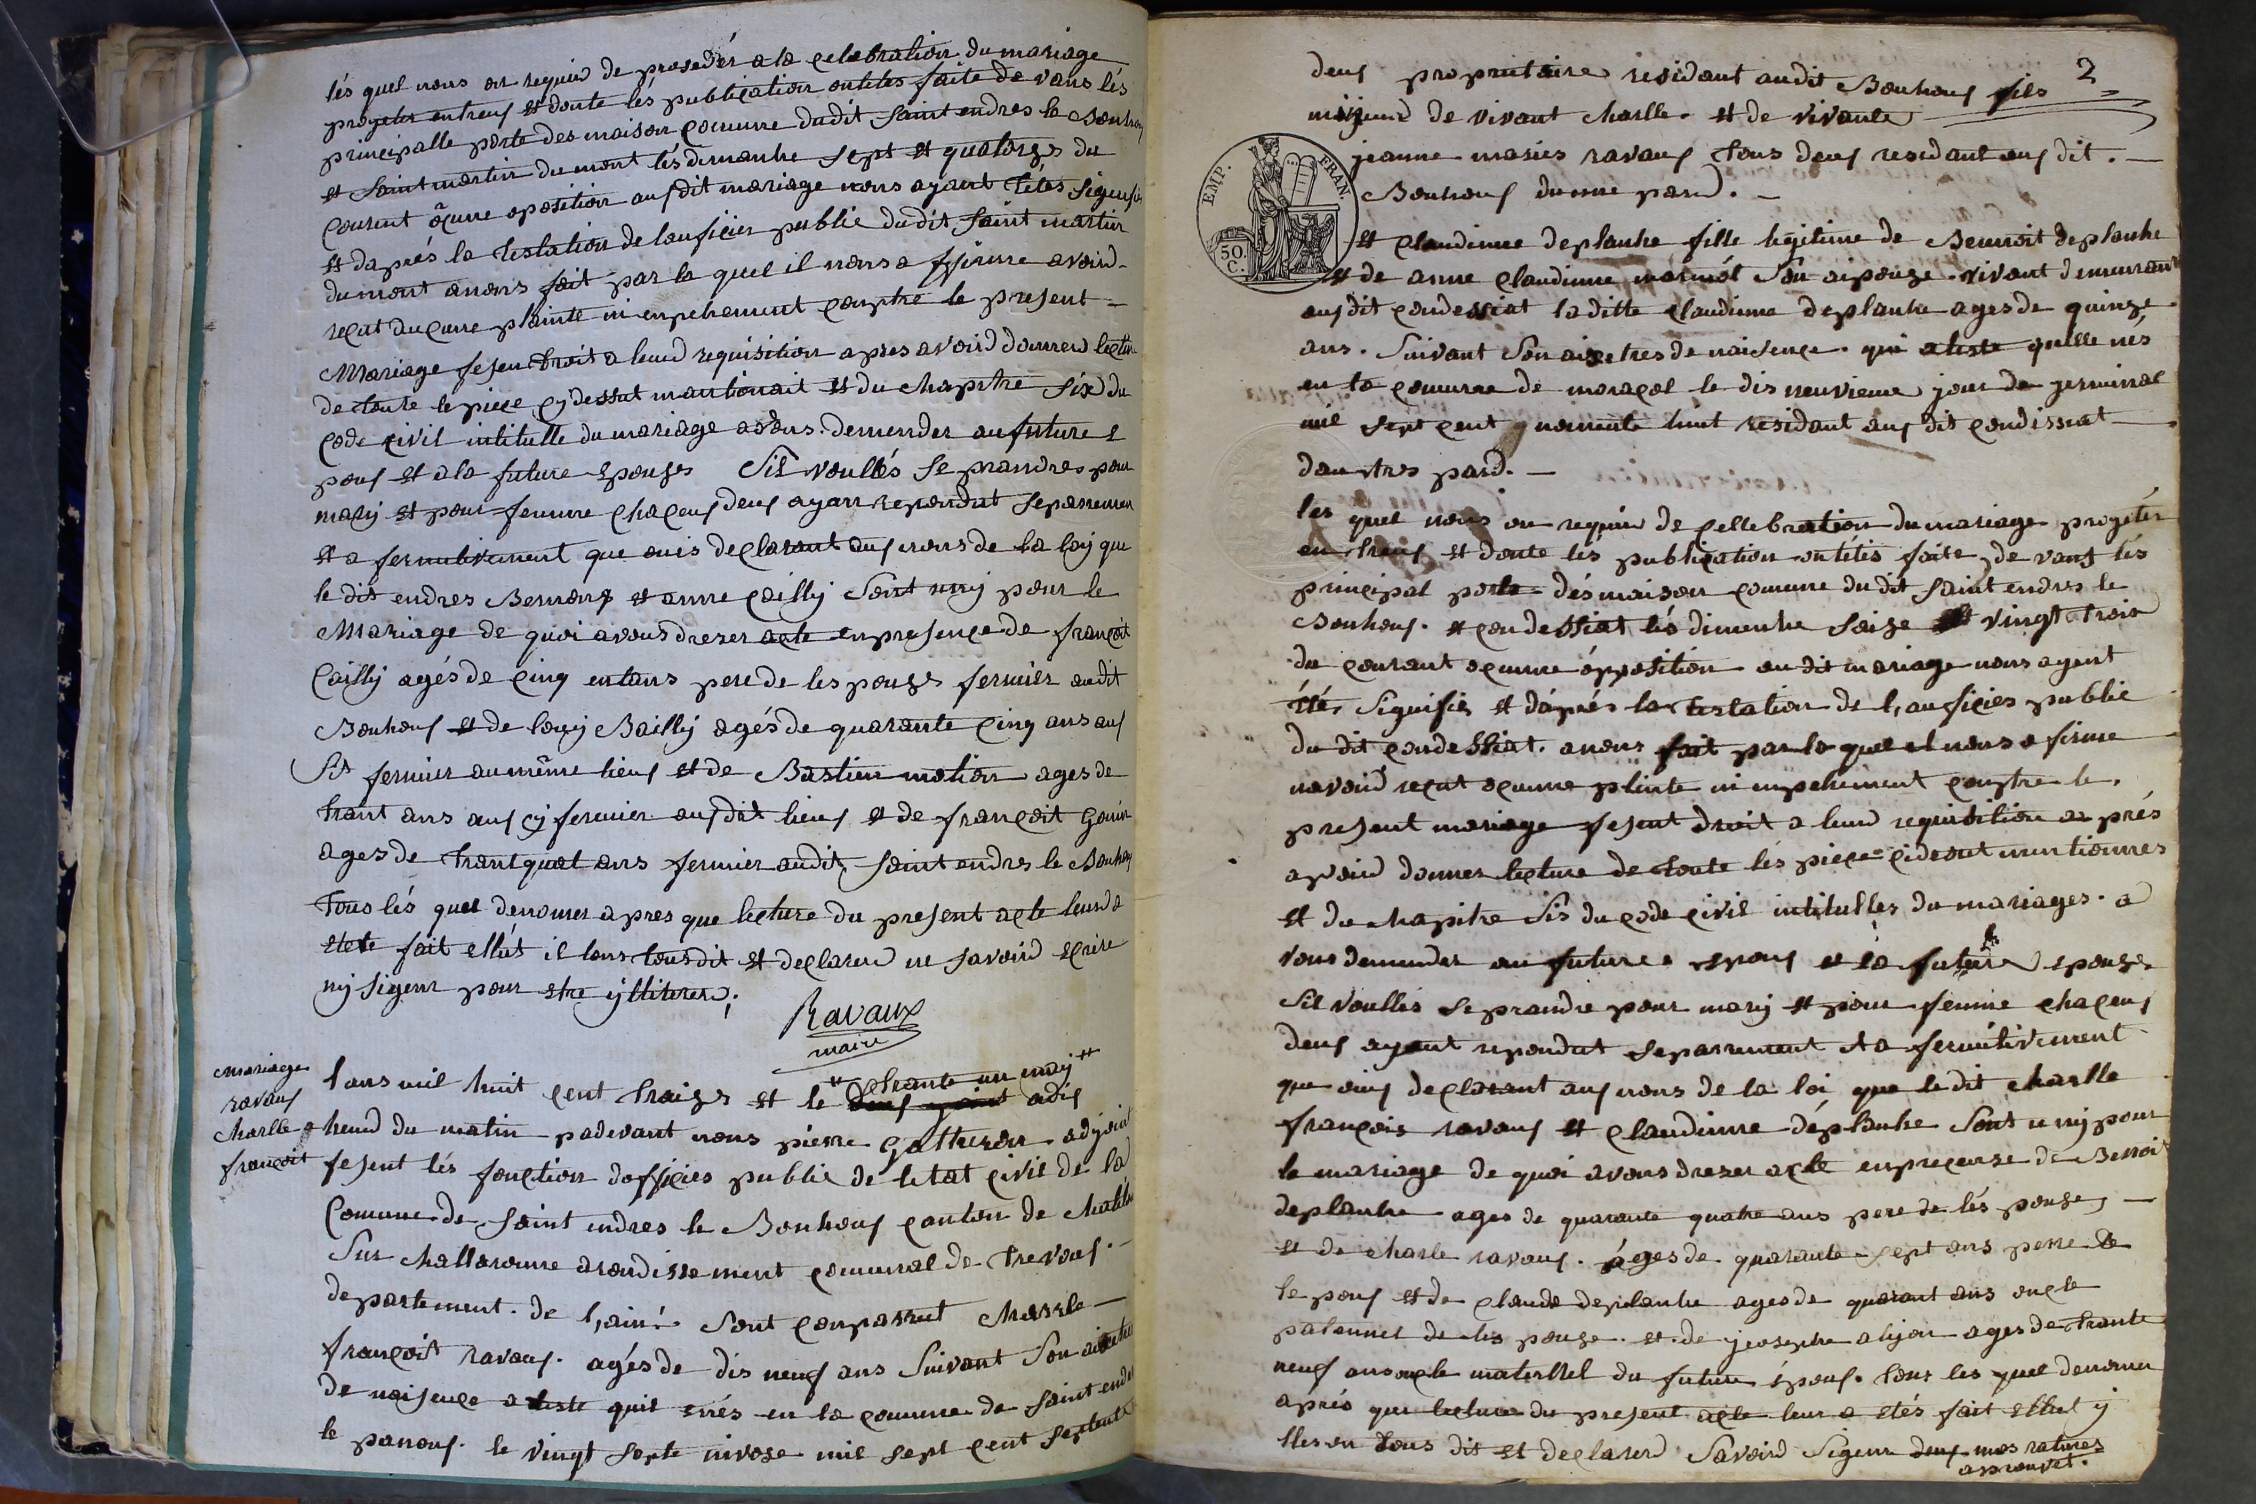 lés quel nous on requiw de proseder a la celebration du mariage
progeter entreuf et doute lés publication ontétes faite de vans lés
principalle porte des maison comune dudit saint endres le Bouhouf
et saint martin du mont lés dimanhe sept et quatorze du
courent ocune oposition aux dit mariage nous ayant tétes signifie
et daprés la testation de lauficier public dudit saint martin
du mont avons fait par la quel il nous a ffirme avoird
reçut aucune plainte ni enpehement contre le present
Mariage fesen droit a leurd requisition apres avoird donner lectur
de toute le piece cy dessut mantionait et du chapitre six du
code civil intitulle du mariage avons demender au future e
pouf et a la future epouzes Sil voullés se prandres pour
mary et pour femme chacuf deuf ayan repondut separremen
et a fermativement que ouis declarant auf nons de la loy que
le dit endres Bernonz et anne Cailly Sont uny pour le
Mariage de quoi avous drezer acte enpresence de françoit
Cailly agés de cinq entans pere de les pouzes fermier audit
Bouhouf et de louy Bailly agés de quarante cinq ans auf
Sis fermier au même lieuf et de Bastien motion ages de
trant ans auf cy fermier aufdit lieuf et de françoit Gouin
ages de trant quat ans fermier audit saint endres le Bouhouf
Tous lés quel denomer apres que lecture du present acte leurd a
etete fait ellus il lons tous dit et declarerd ne savoird ecrire
ny signer pour etre ylliterer;
Ravaux
maire
Mariage
ravauf
charlle
françoit
lans mil huit cent traizs et le trante un may adis
heurd du matin padevant nous pierre Gatheron adjoint
fesent lés fonction dofficies public de letat civil de la
Comune de saint endres le Bouhouf canton de chatillon
Sur challaronne arondissement comunal de trevouf
departement de l,ain: Sont conparrut charrle
françoit ravauf. agés de dis neuf ans Suivant Son aicetres
de naisence a teste quil nés en la comune de saint endres
le panouf. le vingt septe nivose mil sept cent septente
2
deuf propriétaire residant audit Bouhouf fils
mijeurd de vivant charlle et de vivante
jeanne maries ravauf tous deuf residant auf dit.
Bouhouf dunne pard.
et claudinne deplanhe fille légitime de Bennoit deplanhe
et de anne claudinne marmét Son aipouze vivant demeurant
aufdit condessiat la ditte claudinne deplanhe ages de quinze
ans. Suivant Son aisetres de naisence. qui atiste quelle nés
en la comune de moracol le dis neuvieme jour de germinal
mil sept cent nonente huit residant auf dit condissiat
dautres pard.
les quel nous on requiw de cellebration du mariage progétér
entreuf et doute lés publication ontétés faite de vans lés
principal porte dés maison comune dudit saint endres le
Bouhouf. et condessiat lés dimenhe saize et vingt trois
du courant ocunne opposition au dit mariage nous agent
été, Signifies et daprés la testation de l,auficies public
du dit condessiat. avons fait par la quel il nous a firme
navoird reçut ocunne plinte ni enpehement contre le.
present mariage fesent droit a leurd requisition aprés
avoird donner lecture de toute lés piece cidesut mentionnes
et du chapitre Sis du code civil intitulles du mariages. a
vous demander au future epouf et a la future epouze
Sil voullés se prandre pour mary et pour femme chacuf
deuf ayent repondut separrement et a fermativement
que ouis declarant auf nons de la loi que le dit charlle
françois ravauf et claudinne déplanhe Sont uny pour
le mariage de quoi avons drezer acte enprecense de Benoit
deplanhe ages de quarante quatre ans pere de lés pouze,
et de charle ravauf. ages de quarante sept ans perre de
le pouf et de claude deplanhe ages de quarant ans oncle
paternel de lés pouze. et de jeosephe alijon ages de trante
neuf ans oncle maternel du future époux. tous les quel denomer
aprés que lecture du present acte leur a étés fait ellut y
lles on tous dit et declarerd Savoird Signer deuf mos ratures
aprouvet.